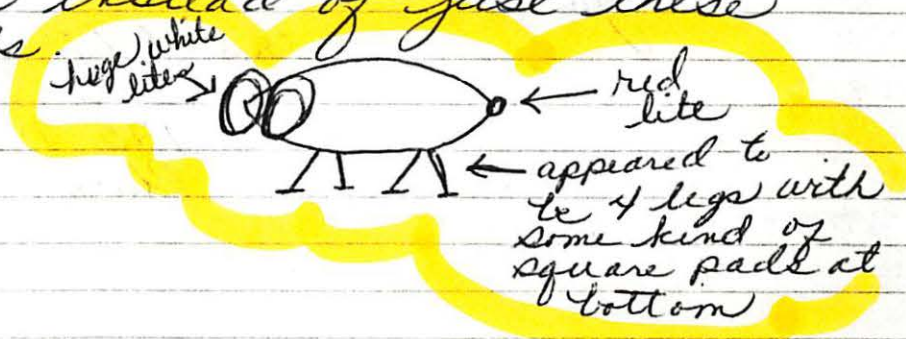 instead of just these
s.
huge white
lites
red
lite
appeared to
be 4 legs with
some kind of
square pads at
bottom